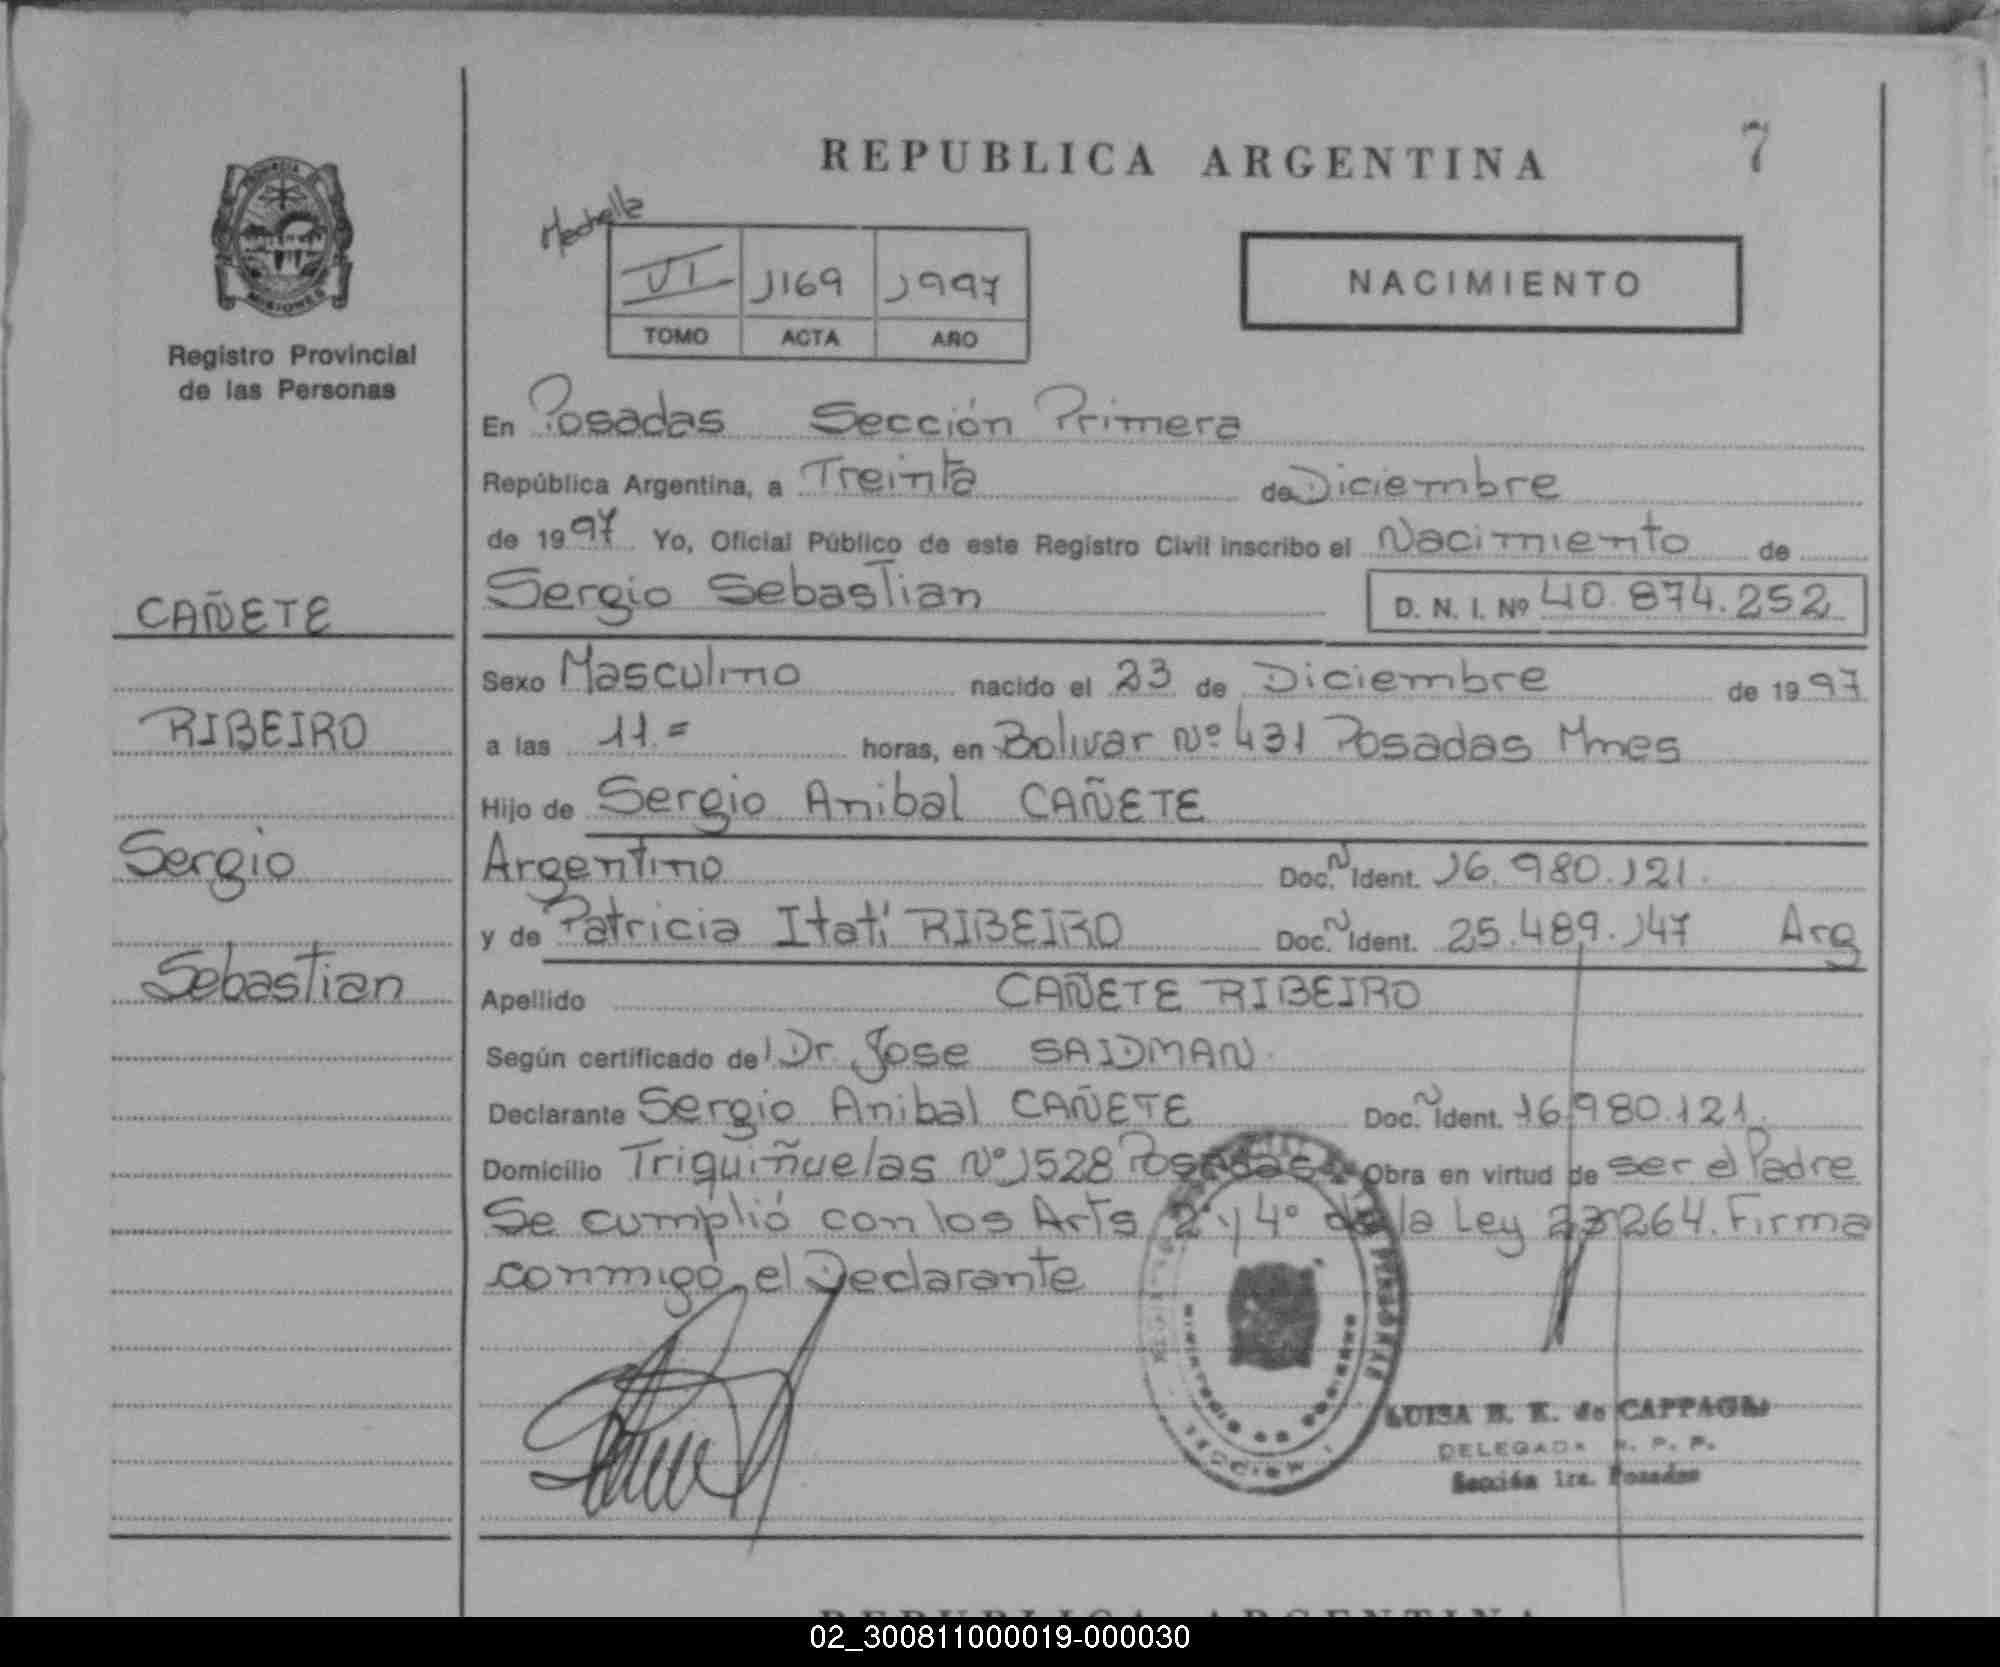 REPUBLICA ARGENTINA
7
VI 1169 1997
TOMO ACTA AÑO
NACIMIENTO
Registro Provincial
de las Personas
En Posadas Sección Primera
República Argentina, a Treinta de Diciembre
de 1997 Yo, Oficial Público de este Registro Civil inscribo el Nacimiento de
CAÑETE
Sergio Sebastian D. N. I. Nº 40.874.252
Sexo Masculino nacido el 23 de Diciembre de 1997
RIBEIRO
a las 11.= horas, en Bolivar Nº 431 Posadas Mnes
Hijo de Sergio Anibal CAÑETE
Sergio
Argentino Doc. Ident. 16.980.121.
y de Patricia Itatí RIBEIRO Doc. Ident. 25.489.147 Arg
Sebastian
Apellido CAÑETE RIBEIRO
Según certificado del Dr Jose SAIDMAN
Declarante Sergio Anibal CAÑETE Doc. Ident. 16.980.121.
Domicilio Triquiñuelas Nº 1528 Posadas Obra en virtud de ser el Padre
Se cumplió con los Arts 2º y 4º de la Ley 23264. Firma
conmigo el Declarante
LUISA B. K. de CAPPAGLI
DELEGADA R. P. P.
Sección 1ra. Posadas
REPUBLICA ARGENTINA
02_300811000019-000030